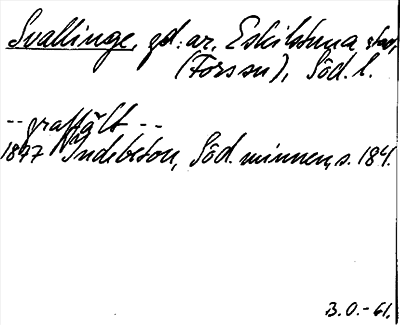 Svallinge, gd: ar, Eskilstuna stad,
(Fors sn), Söd. l.
-- gravfält --
1877 Indebetou, Söd. minnen, s. 184.
B.O.-61.